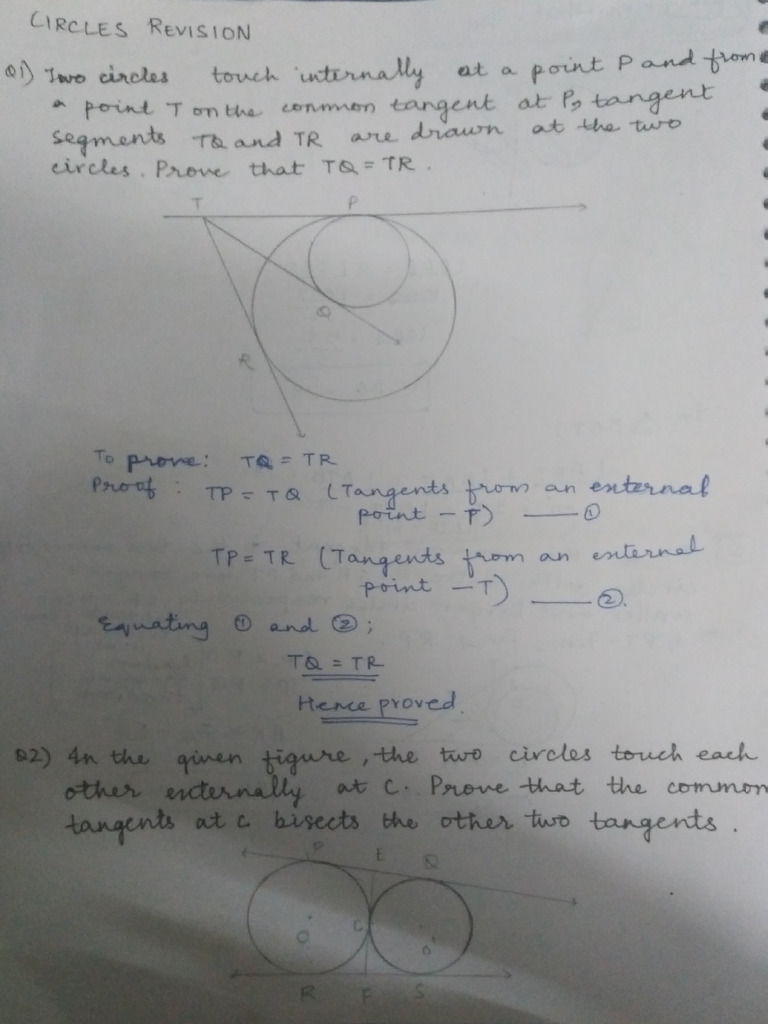 CIRCLES REVISION
Q1) Two circles touch internally at a point P and from
a point T on the common tangent at P, tangent
segments TQ and TR are drawn at the two
circles. Prove that TQ = TR.
T P
Q
R
To prove: TQ = TR
Proof : TP = TQ (Tangents from an external
point - T) —— ①
TP = TR (Tangents from an external
point - T) —— ②.
Equating ① and ② ;
TQ = TR
Hence proved.
Q2) In the given figure, the two circles touch each
other externally at C. Prove that the common
tangents at C bisects the other two tangents.
P E Q
C
O O'
R F S